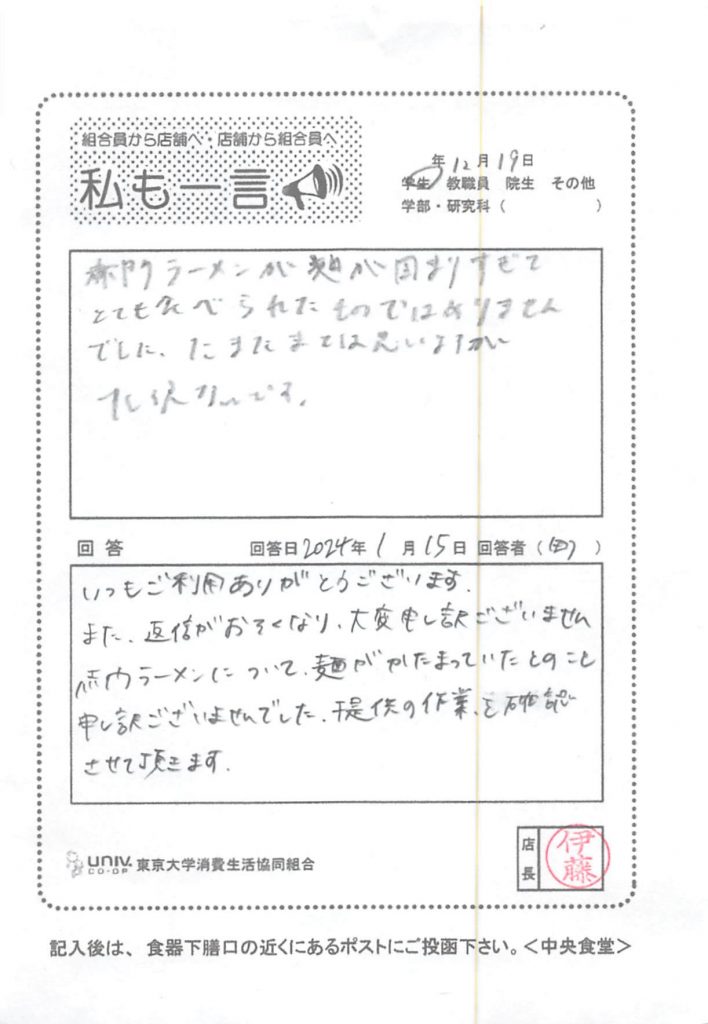 組合員から店舗へ・店舗から組合員へ
私も一言
年12月19日
学生 教職員 院生 その他
学部・研究科（ ）
赤門ラーメンが麺が固まりすぎて
とても食べられたものではありません
でした、たまたまとは思いますが
残念です。
回答 回答日2024年1月15日 回答者（ ）
いつもご利用ありがとうございます.
また、返信がおそくなり、大変申し訳ございません
赤門ラーメンについて、麺がかたまっていたとのこと
申し訳ございませんでした、提供の作業を確認
させて頂きます.
UNIV.
CO-OP
東京大学消費生活協同組合
店長
伊藤
記入後は、食器下膳口の近くにあるポストにご投函下さい。＜中央食堂＞